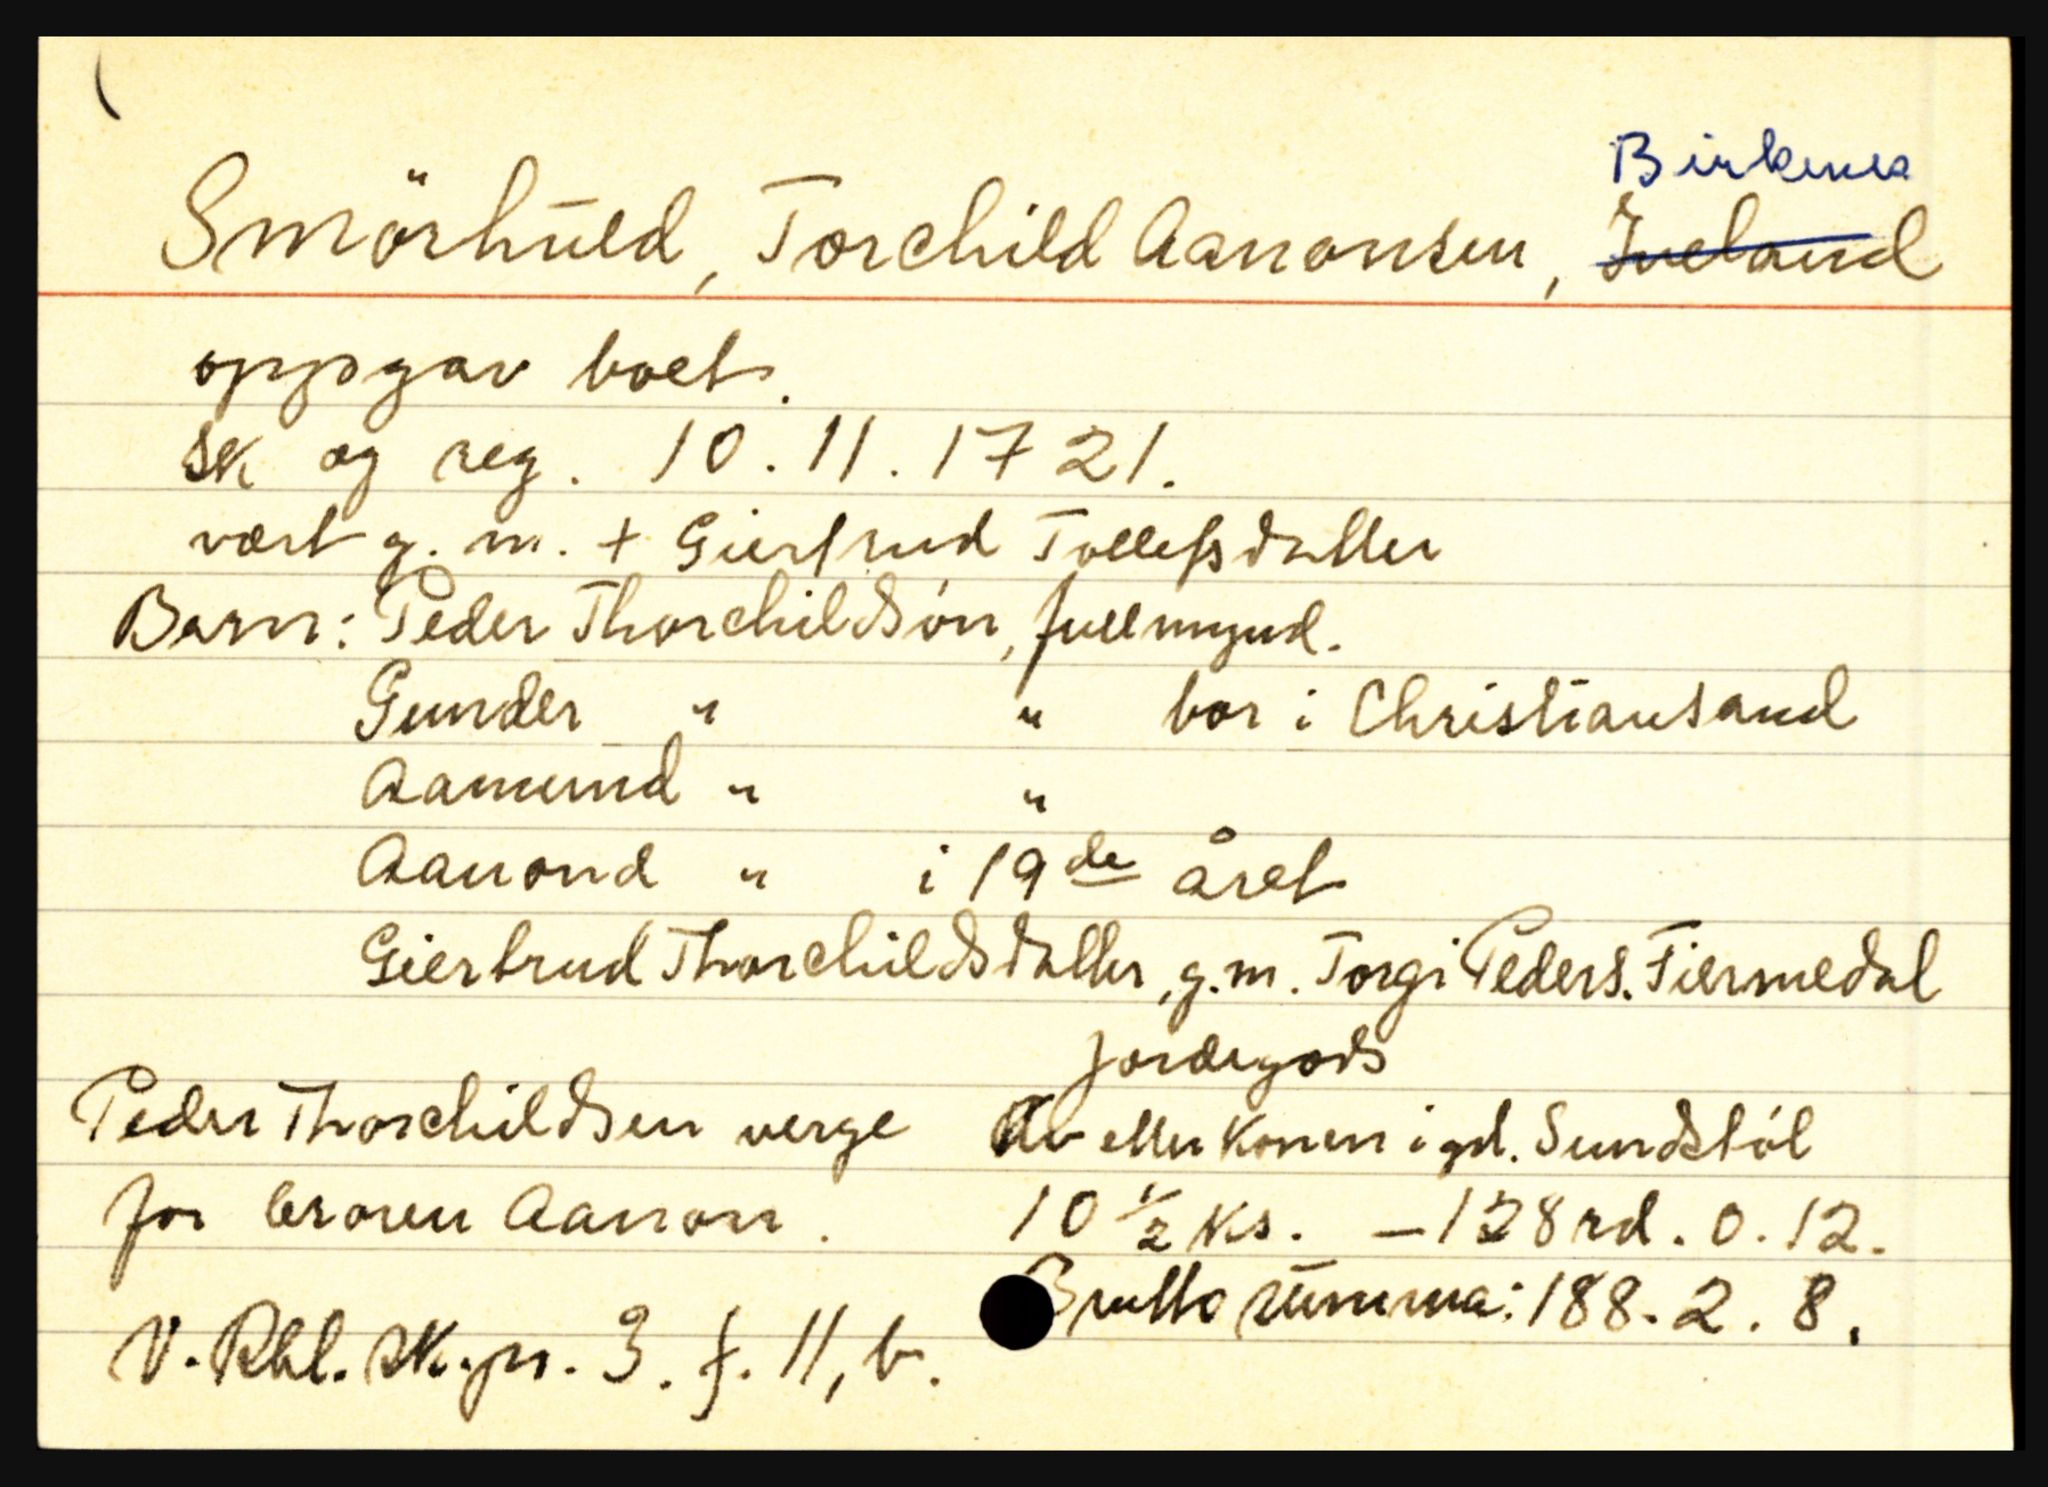 Birkenes
Smörhúld, Torchild Aanonsen, Iveland
oppgav boet.
sk og reg. 10.11.1721.
vært g. m. + Giertrud Tollefsdatter
Barn: Peder Thorchildsön, fullmynd.
Gunder " " bor i Christiansand
Aamund " "
Aanond " i 19de året
Giertrud Thorchildsdatter, g.m. Torgi Peders. Fiermedal
Jordegods
Peder Thorchildsen verge
for broren Aanon.
Av eller konen i gd. Sundstöl
10 1/2 ks. – 128 rd. 0. 12.
Brutto summa: 188. 2. 8.
V. Rbl. sk.pr. 3. f. 11, b.